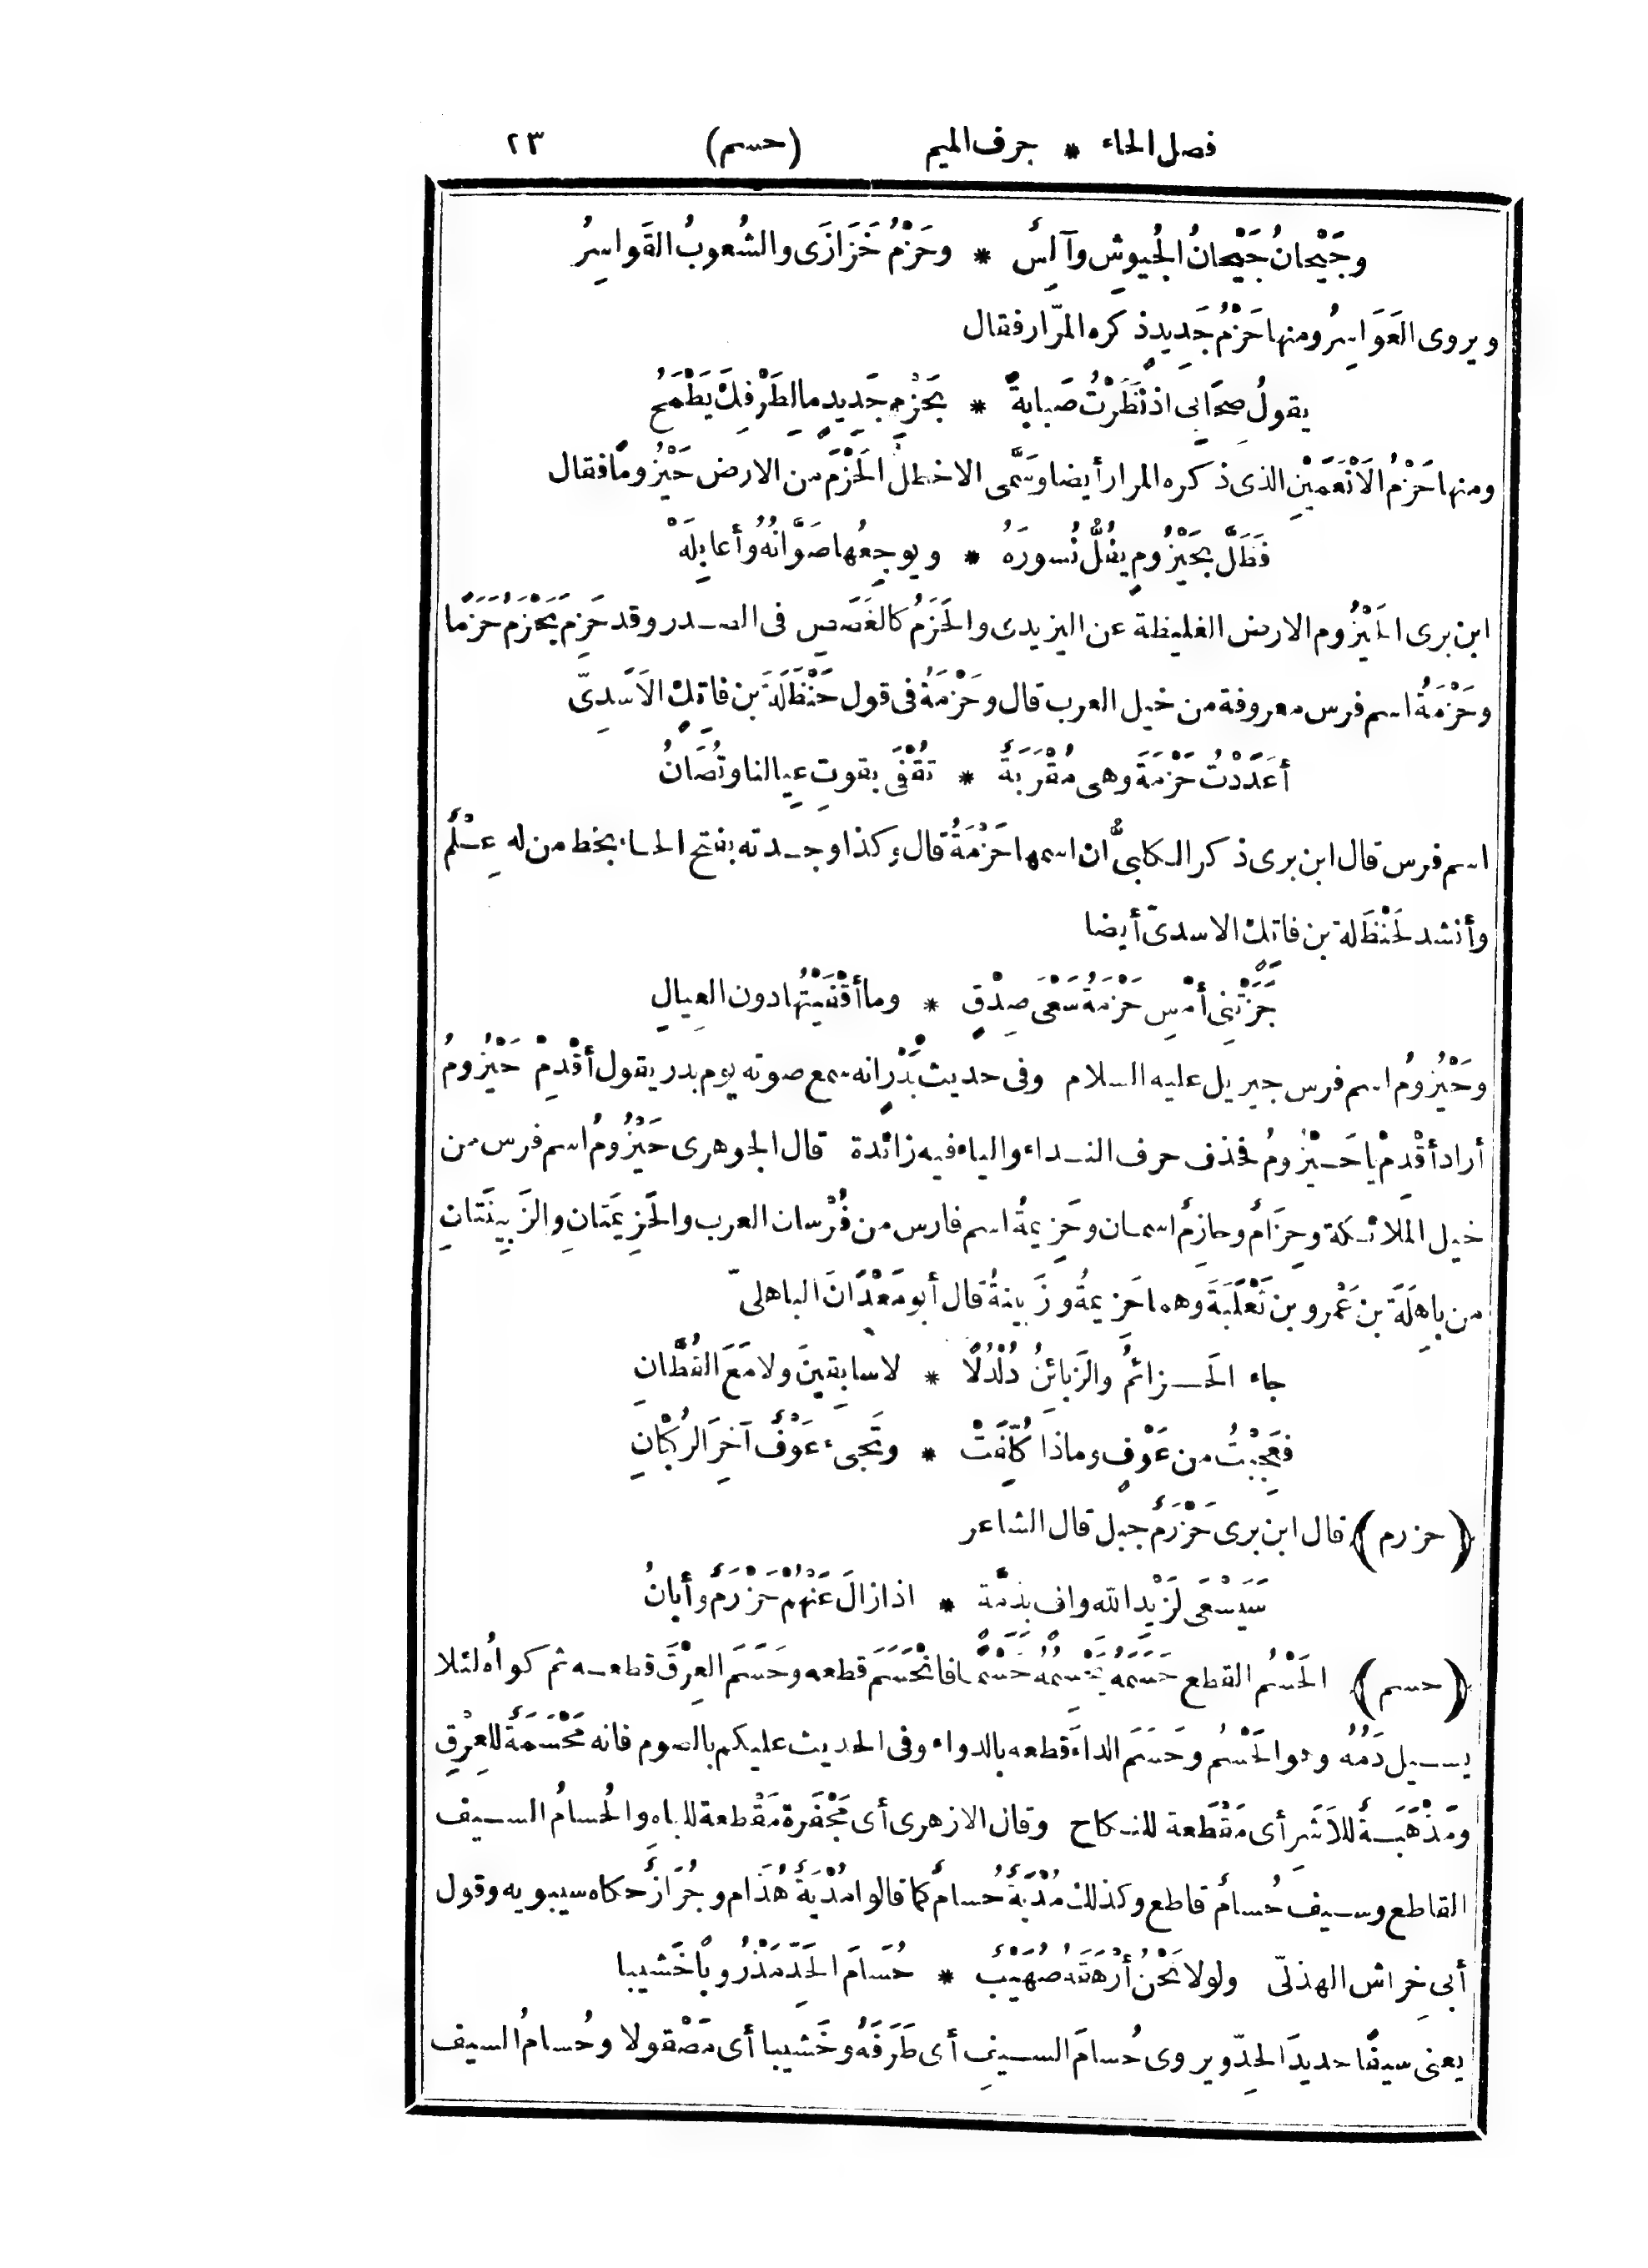 فصل الحاء * حرف الميم (حسم) ٢٣
وجَيْحانُ جَيْحانُ الجُيوشِ وآلِسٌ * وحَزْمُ خَزَازَى والشُعوبُ القَواسِرُ
ويروى العَوَاسِرُ ومنها حَزْمُ جَدِيدٍ ذكره المرّار فقال
يقولُ صِحَابى اذ نَظَرْتُ صَبابةً * بحَزْمِ جَدِيدٍ ما لِطَرْفِكَ يَطْمَحُ
ومنها حَزْمُ الاَنْعَمَيْنِ الذى ذكره المرار أيضا وسَمَّى الاخطلُ الحَزْمَ من الارض حَيْزُومًا فقال
فَظَلَّ بحَيْزُومٍ يفُلُّ نُسورَهُ * ويوجِعُها صَوَّانُهُ وأعابِلُهْ
ابن برى الحَيْزُوم الارض الغليظة عن اليزيدى والحَزَمُ كالغَصَصِ فى الصدر وقد حَزِمَ يَحْزَمُ حَزَمًا
وحَزْمَةُ اسم فرس معروفة من خيل العرب قال وحَزْمَةُ فى قول حَنْظَلَةَ بن فاتِكٍ الاَسَدِىّ
أعَدَدْتُ حَزْمَةَ وهى مُقْرَبَةٌ * تُقْفَى بقوتِ عِيالنا وتُصَانُ
اسم فرس قال ابن برى ذكر الكلبىُّ ان اسمها حَزْمَةُ قال وكذا وجدته بفتح الحاء بخط من له عِلْمٌ
وأنشد لحَنْظَلة بن فاتك الاسدىّ أيضا
جَزَتْنِى أمْسِ حَزْمَةُ سَعْىَ صِدْقٍ * وما أقْفَيْتُها دون العِيالِ
وحَيْزُومُ اسم فرس جبريل عليه السلام وفى حديث بَدْرٍ انه سمع صوته يوم بدر يقول أقْدِمْ حَيْزُومُ
أراد أقْدِمْ يا حَيْزُومُ فحذف حرف النداء والياء فيه زائدة قال الجوهرى حَيْزُومُ اسم فرس من
خيل المَلائكة وحِزَامٌ وحازِمٌ اسمان وحَزِيمةُ اسم فارس من فُرْسان العرب والحَزِيمَتانِ والزَبِينَتانِ
من باهِلَةَ بن عَمْرو بن ثَعْلَبَةَ وهما حَزيمةُ وزَبينةُ قال أبو مَعْدَانَ الباهلىّ
جاء الحَزائمُ والزَبائِنُ دُلْدُلاً * لا سابِقِينَ ولا مَعَ القُطَّانِ
فعَجِبْتُ من عَوْفٍ وماذا كُلِّفَتْ * وتَجىء عَوْفٌ آخِرَ الرُكْبانِ
(حزرم) قال ابن برى حَزْرَمٌ جبل قال الشاعر
سَيَسْعَى لزَيْدِ الله وافٍ بذِمَّة * اذا زالَ عَنْهُم حَزْرَمٌ وأبانُ
(حسم) الحَسْمُ القطع حَسَمَهُ يَحْسِمُهُ حَسْمًا فانْحَسَمَ قطعه وحَسَمَ العِرْقَ قطعه ثم كواُه لئلا
يسيل دَمُهُ وهو الحَسْمُ وحَسَمَ الداءَ قطعه بالدواء وفى الحديث عليكم بالصوم فانه مَحْسَمَةٌ للعِرْقِ
ومَذْهَبَةٌ للاَشَرِ أى مَقْطَعة للنكاح وقال الازهرى أى مَجْفَرة مَقْطعة للباهِ والحُسامُ السيف
القاطع وسيف حُسامٌ قاطع وكذلك مُدْيَةٌ حُسامٌ كما قالوا مُدْيَةٌ هُذَام وجُرَازٌ حكاه سيبويه وقول
أبى خِراش الهذلىّ ولولا نَحْنُ أرْهَقَهُ صُهَيْبٌ * حُسَامَ الحَدِّ مَذْرُوبًا خَشيبا
يعنى سيفًا حديدَ الحِدّ ويروى حُسامَ السيفِ أى طَرَفَهُ وخَشيبا أى مَصْقولا وحُسامُ السيف